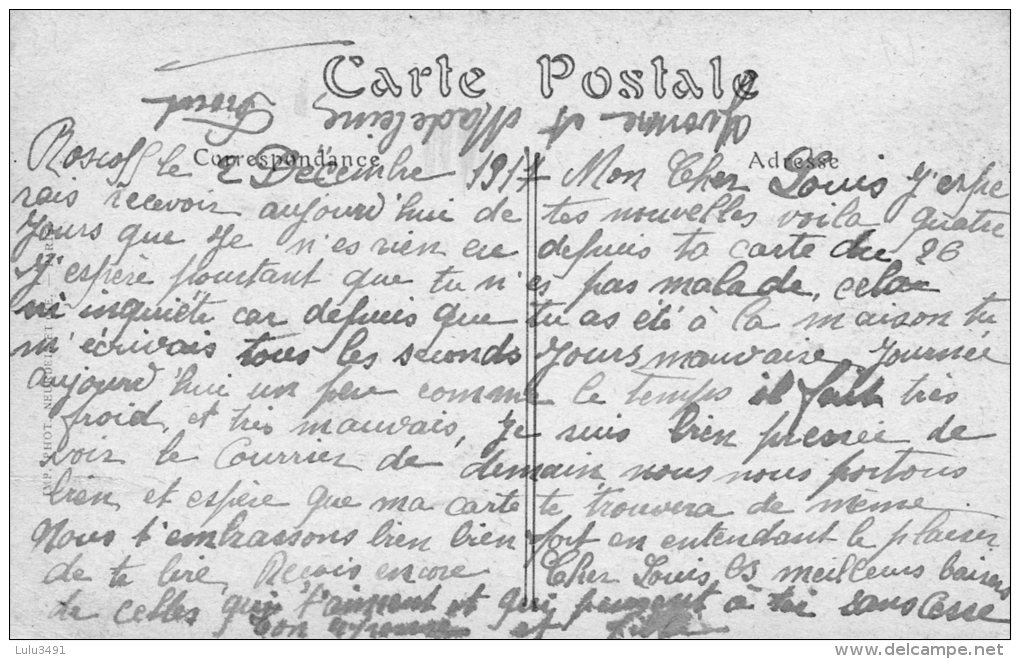 Carte Postale
Yvonne et Madeleine
Correspondance Adresse
Roscoff le 2 Décembre 1917 Mon Cher Louis j'espe
rais recevoir aujourd'hui de tes nouvelles voila quatre
jours que je n'es rien eu depuis ta carte du 26
J'espère pourtant que tu n'es pas malade, cela
m'inquiéte car depuis que tu as été à la maison tu
m'écrivais tous les seconds jours mauvaire journée
aujourd'hui un peu comme le temps il fait très
froid, et très mauvais, je suis bien pressée de
voir le Courrier de demain, nous nous portons
bien, et espère que ma carte te trouvera de même
Nous t'embrassons bien bien fort en entendant le plaisir
de te lire, Reçois encore Cher Louis, les meilleurs baisers
de celles qui t'aiment et qui pensent à toi sans cesse
ton et
Lulu3491
delcampe.net